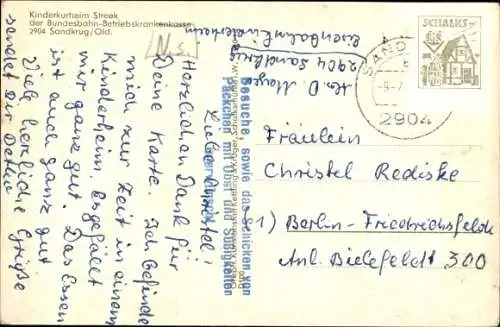 Kinderkurheim Streek
der Bundesbahn-Betriebskrankenkasse
2904 Sandkrug/Old.
N.S.
Abs. D. Meyer
2904 Sandkrug
Eisenbahnkinderheim
SCHALKS
SAND
2904
Besuche, sowie das Schicken von
Päckchen mit Obst und Süßigkeiten
Liebe Christel!
Herzlichen Dank für
Deine Karte. Ich befinde
mich zur Zeit in einem
Kinderheim. Es gefällt
mir ganz gut. Das Essen
ist auch ganz gut
Viele herzliche Grüße
sendet Dir Detlev
Fräulein
Christel Rediske
1) Berlin-Friedrichsfelde
Anl. Bielefeldt 300